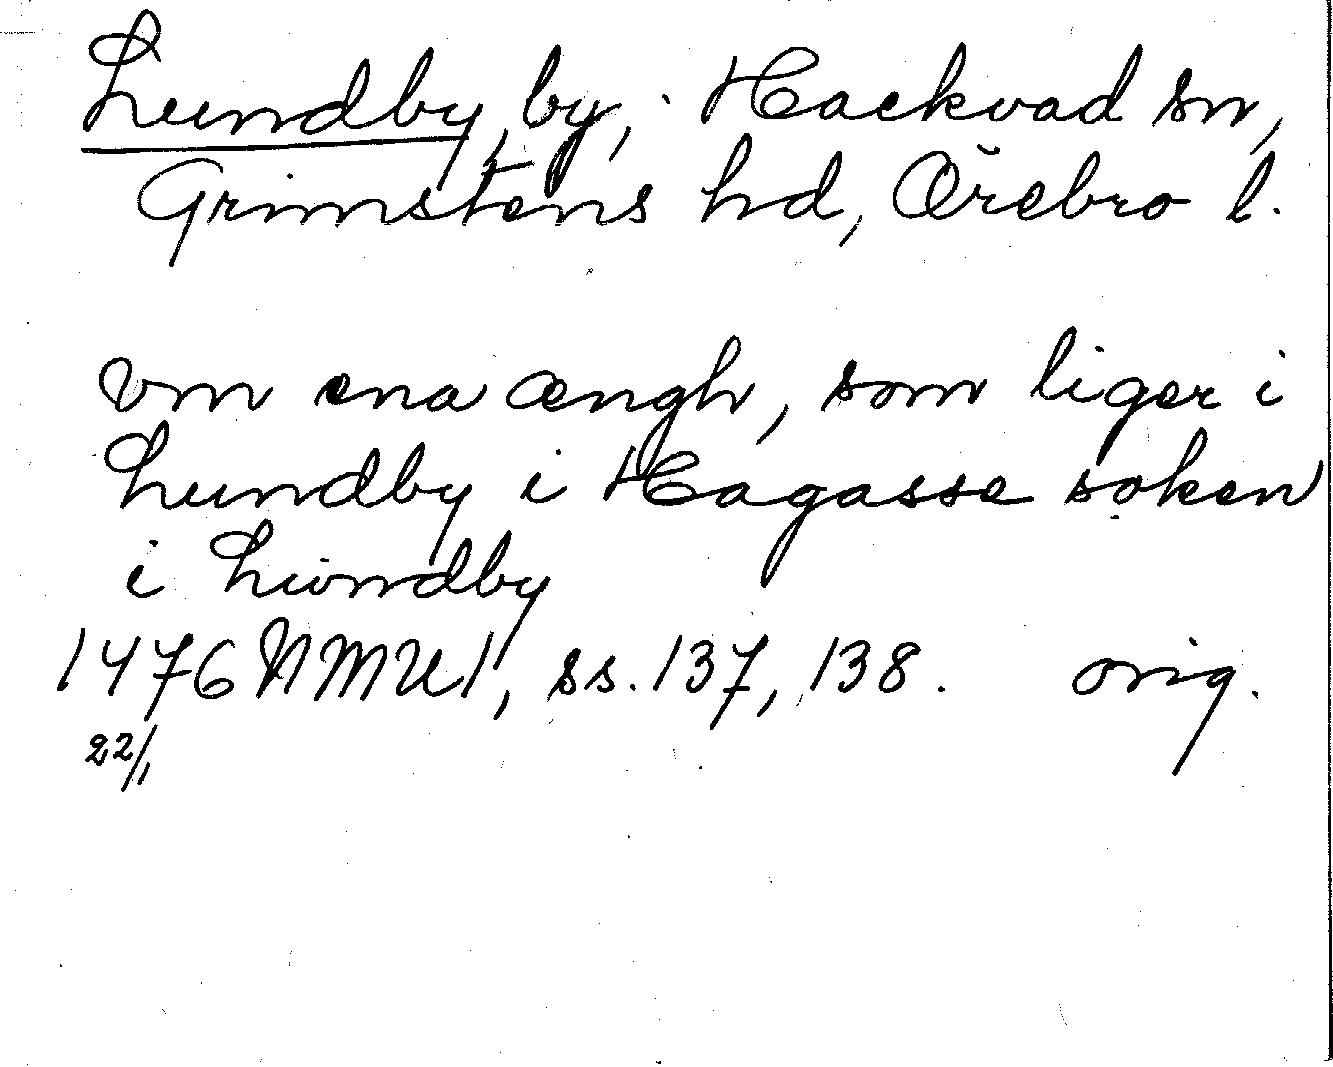 Lundby, by, Hackvad sn,
Grimstens hd, Örebro l.
Vm ena ængh, som liger i
Lundby i Hagasse soken
i Lwndby
1476 NMU1, ss. 137, 138. orig.
22/1